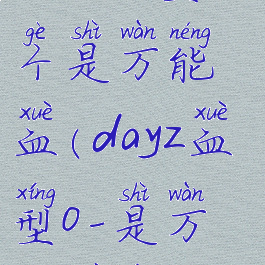 gè shì wàn néng
个是万能
xuè xuè
血(dayz血
xíng shì wàn
型0-是万